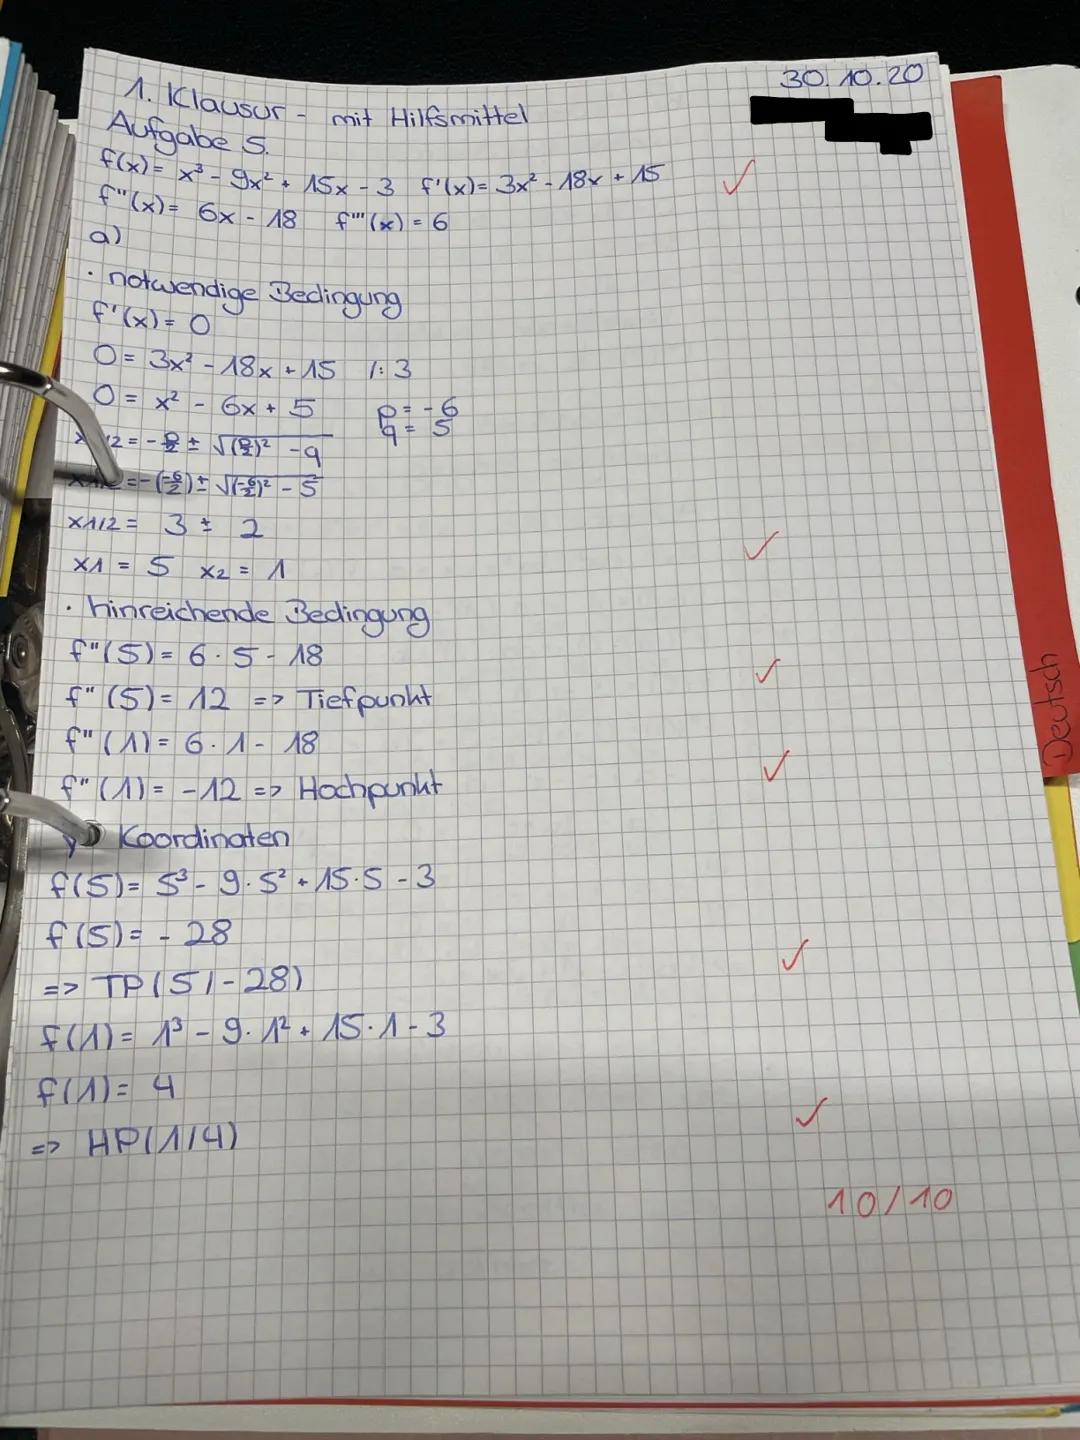 30.10.20
1. Klausur - mit Hilfsmittel
Aufgabe 5.
f(x) = x³ - 9x² + 15x - 3 f'(x) = 3x² - 18x + 15 ✓
f''(x) = 6x - 18 f'''(x) = 6
a)
· notwendige Bedingung
f'(x) = 0
0 = 3x² - 18x + 15 /: 3
0 = x² - 6x + 5 p = -6
q = 5
x1/2 = -p/2 ± √((p/2)² - q)
x1/2 = -(-6/2) ± √((-6/2)² - 5)
x1/2 = 3 ± 2 ✓
x1 = 5 x2 = 1
· hinreichende Bedingung
f''(5) = 6 · 5 - 18 ✓
f''(5) = 12 => Tiefpunkt
f''(1) = 6 · 1 - 18 ✓
f''(1) = -12 => Hochpunkt
y Koordinaten
f(5) = 5³ - 9 · 5² + 15 · 5 - 3
f(5) = - 28
=> TP(5/-28) ✓
f(1) = 1³ - 9 · 1² + 15 · 1 - 3
f(1) = 4
=> HP(1/4) ✓
10/10
Deutsch